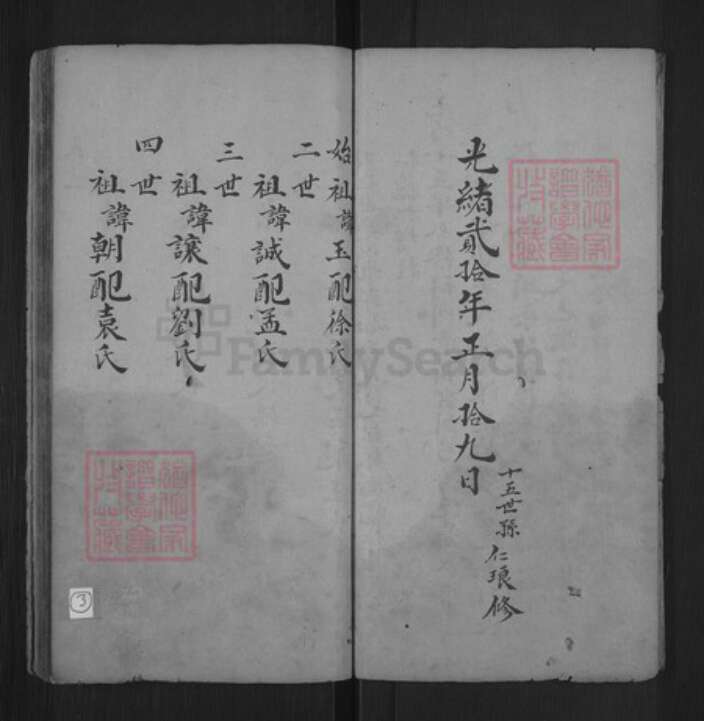 光緒貳拾年正月拾九日
十五世孫仁琅修
始祖諱玉配徐氏
二世
祖諱誠配孟氏
三世
祖諱讓配劉氏
四世
祖諱朝配袁氏
3
FamilySearch